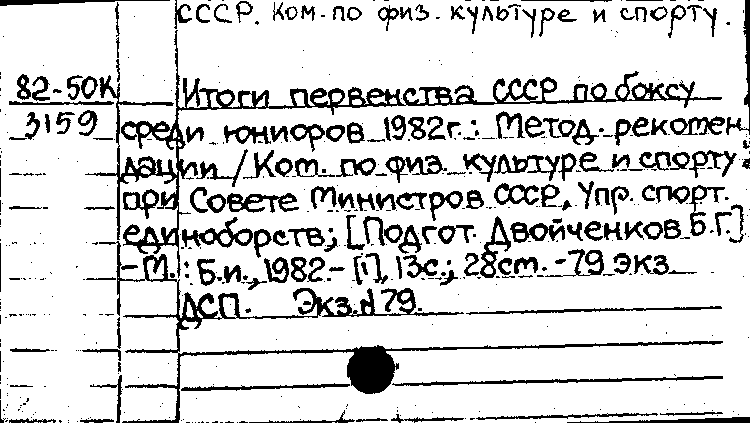 СССР. Ком. по физ. культуре и спорту.
82-50К Итоги первенства СССР по боксу
3159 среди юниоров 1982г.: Метод. рекомен-
дации / Ком. по физ. культуре и спорту
при Совете Министров СССР, Упр. спорт.
единоборств; [Подгот. Двойченков Б.Г.]
-М.: Б.и., 1982.- [1], 13с.; 28см. -79 экз.
ДСП. Экз.№79.